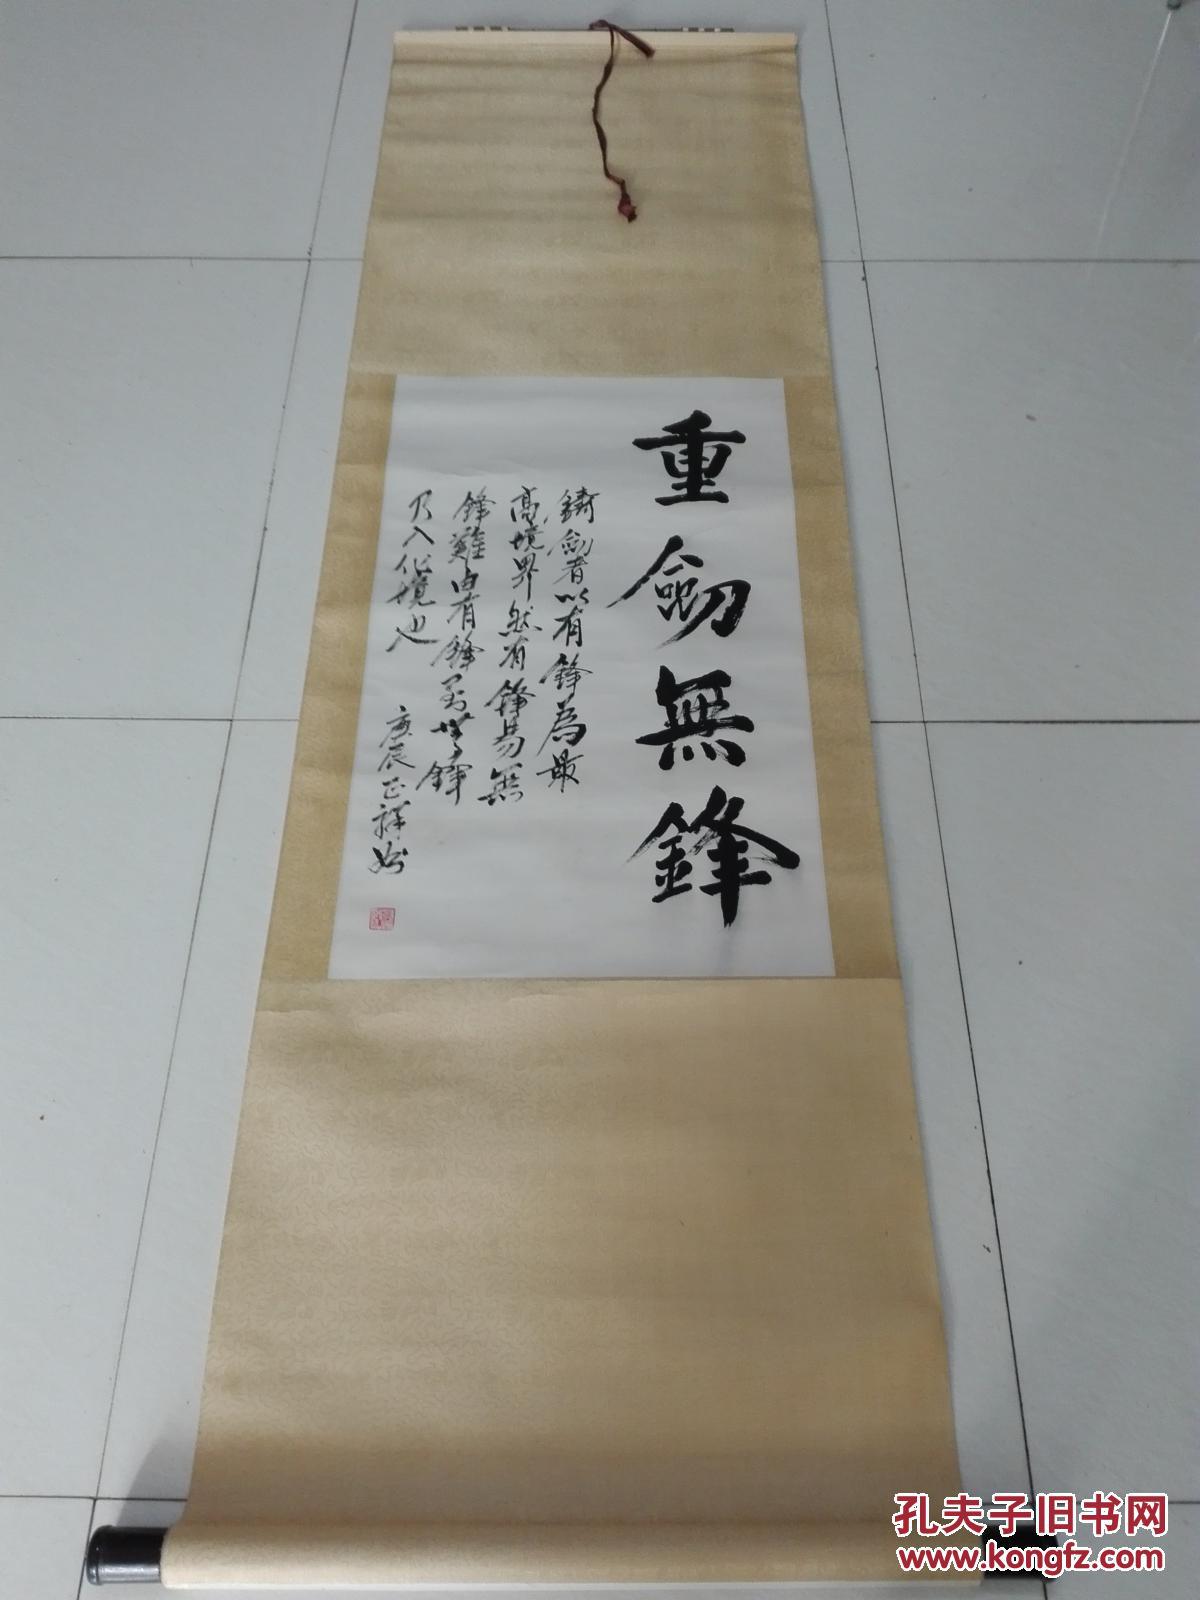 重劒無鋒
鑄劍者以有鋒為最
高境界然有鋒易無
鋒難由有鋒至無鋒
乃入化境也
庚辰正祥
孔夫子旧书网
www.kongfz.com